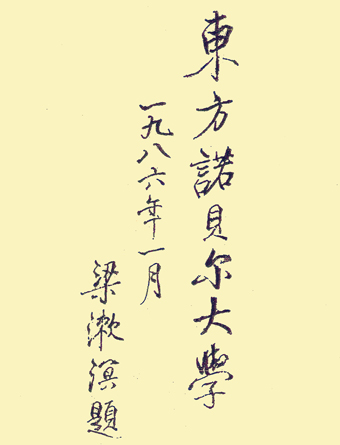 東方諾貝尔大學
一九八六年一月
梁漱溟題